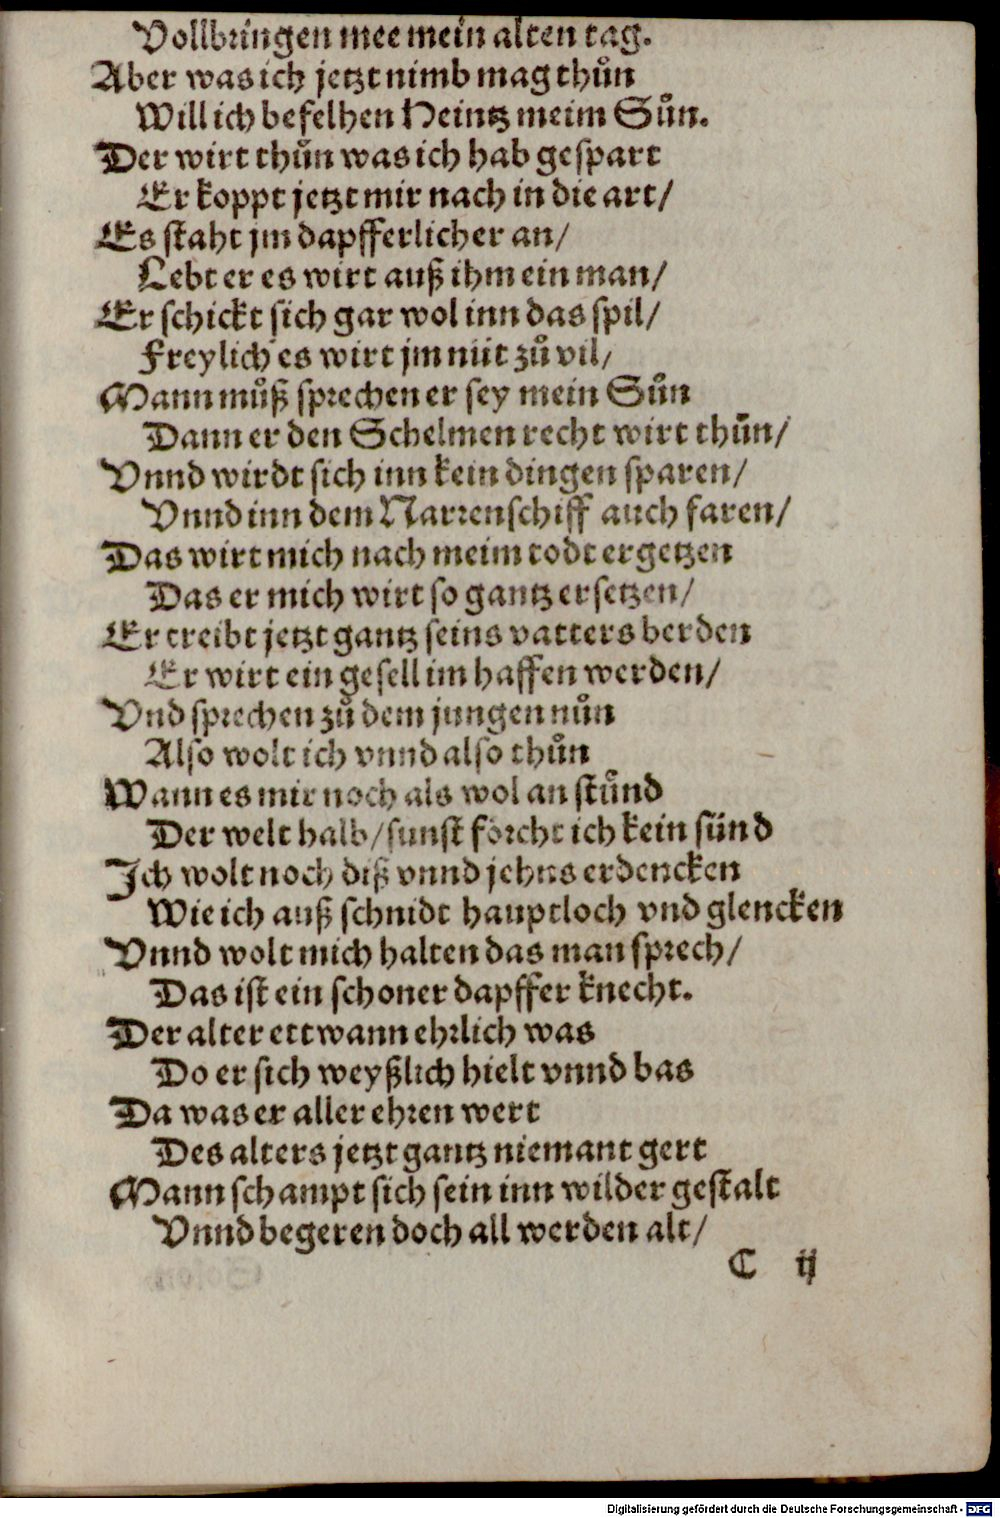 Vollbringen mee mein alten tag.
Aber was ich jetzt nimb mag thůn
Will ich befelhen Heintz meim Sůn.
Der wirt thůn was ich hab gespart
Er koppt jetzt mir nach in die art/
Es staht jm dapfferlicher an/
Lebt er es wirt auß ihm ein man/
Er schickt sich gar wol inn das spil/
Freylich es wirt jm nüt zů vil/
Mann můß sprechen er sey mein Sůn
Dann er den Schelmen recht wirt thůn/
Vnnd wirdt sich inn kein dingen sparen/
Vnnd inn dem Narrenschiff auch faren/
Das wirt mich nach meim todt ergetzen
Das er mich wirt so gantz ersetzen/
Er treibt jetzt gantz seins vatters berden
Er wirt ein gesell im haffen werden/
Vnd sprechen zů dem jungen nůn
Also wolt ich vnnd also thůn
Wann es mir noch als wol an stůnd
Der welt halb/ sunst förcht ich kein sünd
Ich wolt noch diß vnnd jehns erdencken
Wie ich auß schnidt hauptloch vnd glencken
Vnnd wolt mich halten das man sprech/
Das ist ein schoner dapffer knecht.
Der alter ettwann ehrlich was
Do er sich weyßlich hielt vnnd bas
Da was er aller ehren wert
Des alters jetzt gantz niemant gert
Mann schampt sich sein inn wilder gestalt
Vnnd begeren doch all werden alt/
C ij
Digitalisierung gefördert durch die Deutsche Forschungsgemeinschaft - DFG